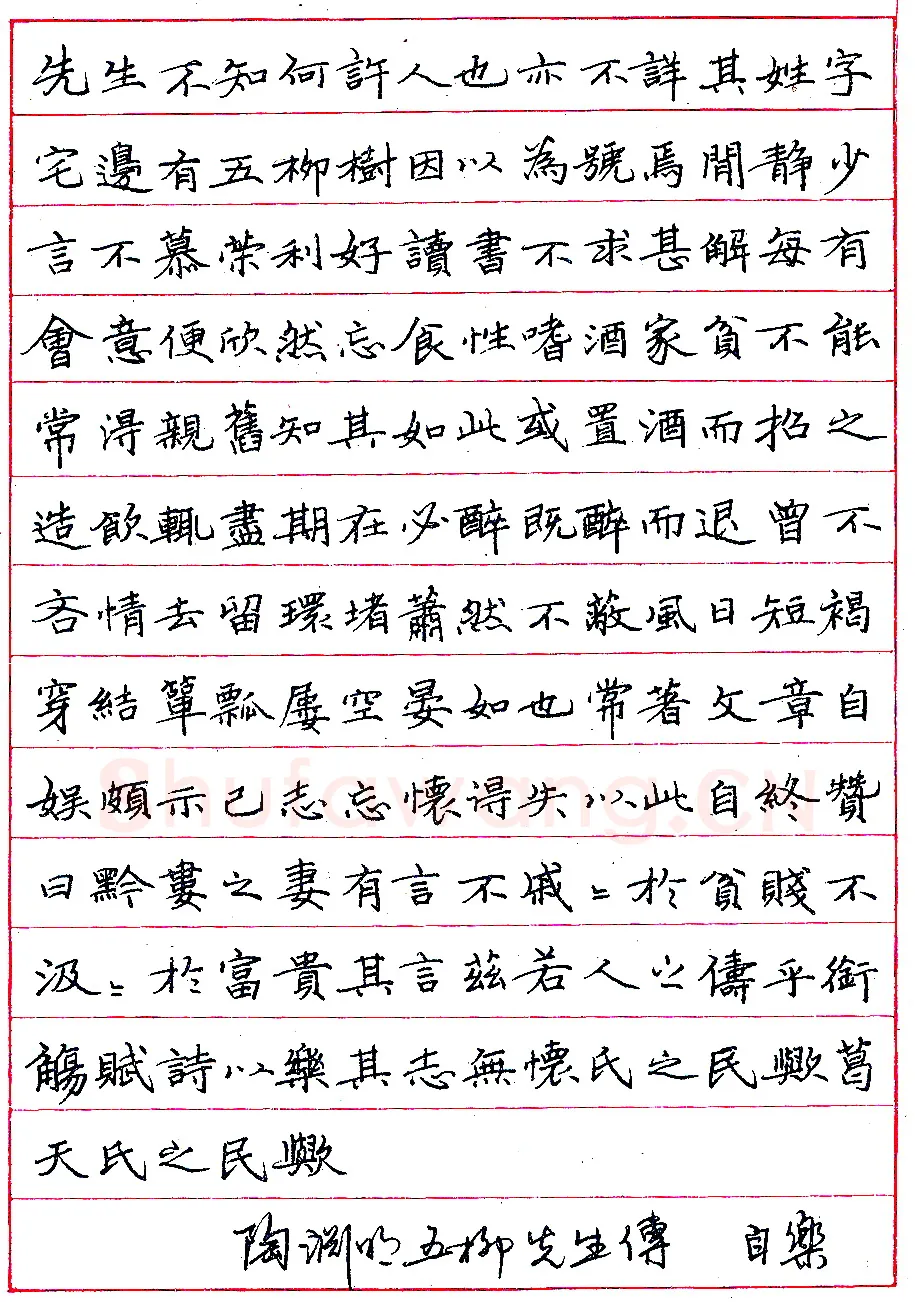 先生不知何許人也亦不詳其姓字
宅邊有五柳樹因以為號焉閒静少
言不慕荣利好讀書不求甚解每有
會意便欣然忘食性嗜酒家貧不能
常得親舊知其如此或置酒而招之
造飲輒盡期在必醉既醉而退曾不
吝情去留環堵蕭然不蔽風日短褐
穿結簞瓢屢空晏如也常著文章自
娱頗示己志忘懷得失以此自終贊
曰黔婁之妻有言不戚々於貧賤不
汲々於富貴其言兹若人之儔乎銜
觴賦詩以樂其志無懷氏之民歟葛
天氏之民歟
陶渊明五柳先生傳 自樂
Shufawang.CN